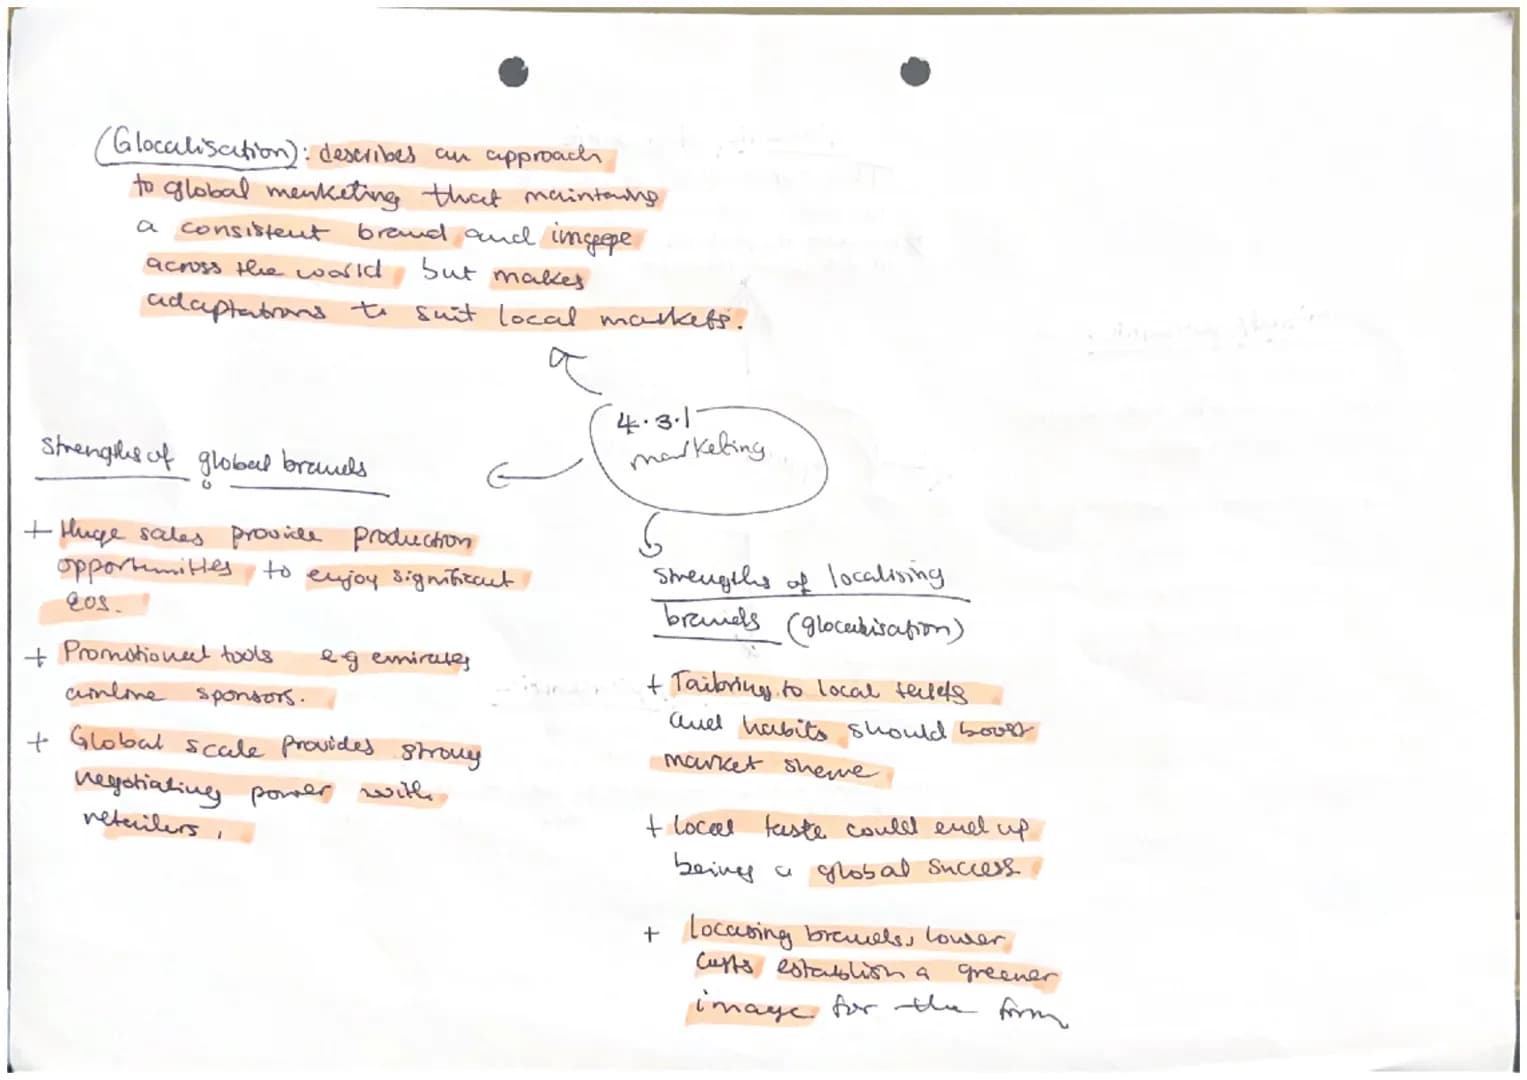 (Glocalisation): describes an approach
to global marketing that maintains
a consistent brand and image
across the world but makes
adaptations to suit local markets.
4.3.1
marketing
Strengths of global brands
+ Huge sales provide production
opportunities to enjoy significant
EOS.
+ Promotional tools eg emirates
airline sponsors.
+ Global scale provides strong
negotiating power with
retailers.
Strengths of localising
brands (glocalisation)
+ Tailoring to local tastes
and habits should boost
market share
+ local taste could end up
being a global success
+ Locasing brands, lower
costs establish a greener
image for the firm